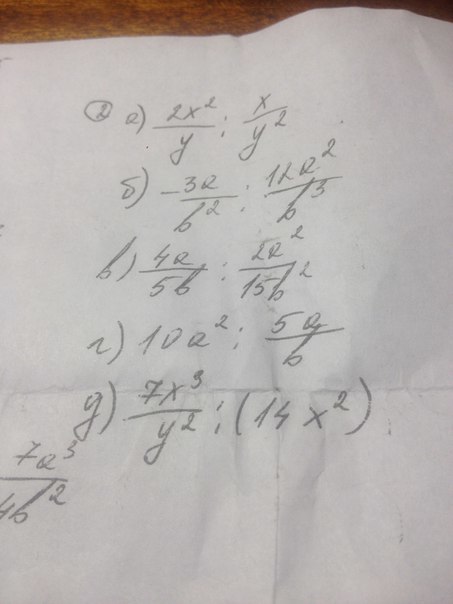 ② а) 2x²/y : x/y²
б) -3a/b² : 12a²/b³
в) 4a/5b : 2a²/15b²
г) 10a² : 5a/b
д) 7x³/y² : (14x²)
7a³/4b²